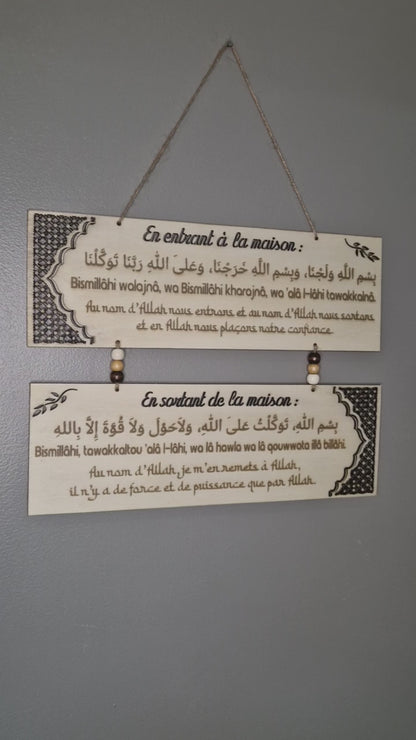 En entrant à la maison :
بِسْمِ اللَّهِ وَلَجْنَا، وَبِسْمِ اللَّهِ خَرَجْنَا، وَعَلَىَ اللَّهِ رَبَّنَا تَوَكَّلْنَا
Bismillâhi walajnâ, wa Bismillâhi kharajnâ, wa 'alâ l-lâhi tawakkalnâ.
Au nom d'Allah nous entrons et au nom d'Allah nous sortons
et en Allah nous plaçons notre confiance.
En sortant de la maison :
بِسْمِ اللهِ، تَوَكَّلْتُ عَلىَ اللهِ، وَلاَحَوْلَ وَلاَ قُوَّةَ إِلاَّ بِاللهِ
Bismillâhi, tawakkaltou 'alâ l-lâhi, wa lâ hawla wa lâ qouwwata illâ billâhi.
Au nom d'Allah, je m'en remets à Allah,
il n'y a de force et de puissance que par Allah.